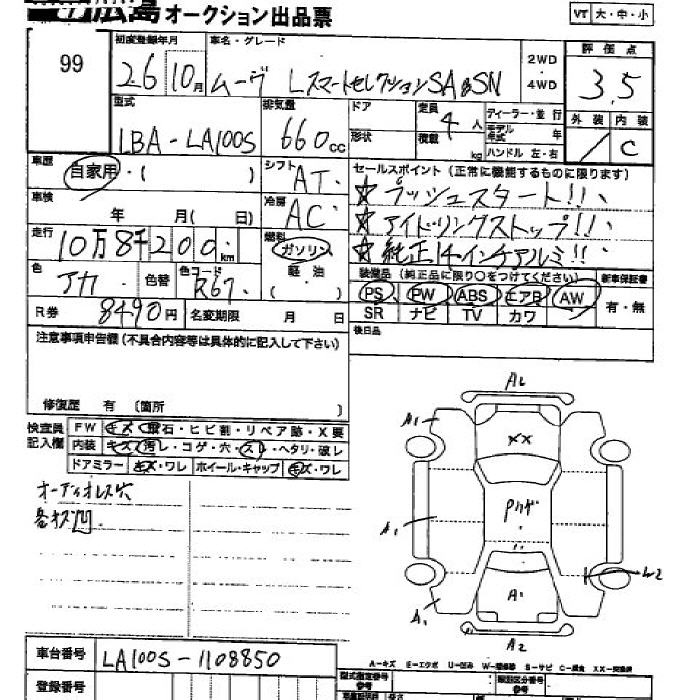 広島オークション出品票
VT 大・中・小
99
初度登録年月
26 10月
車名・グレード
ムーヴ LスマートセレクションSA&SN
2WD
4WD
評価点
3.5
型式
LBA-LA100S
排気量
660cc
ドア
形状
定員
4人
積載
kg
ディーラー・並行
モデル年式 年
ハンドル 左・右
外装 内装
/ C
車歴
自家用・( )
シフト
AT
セールスポイント(正常に機能するものに限ります)
☆プッシュスタート!!
☆アイドリングストップ!!
☆純正14インチアルミ!!
車検
年 月( 日)
冷房
AC
走行
10万8千200km
燃料
ガソリン
軽油
( )
色
アカ
色替
色コード
R67
装備品(純正品に限り○をつけてください)
新車保証書
PS PW ABS エアB AW
有・無
SR ナビ TV カワ
R券 8490円
名変期限 月 日
後日品
注意事項申告欄(不具合内容等は具体的に記入して下さい)
修復歴 有 〔箇所 〕
検査員記入欄
FW キズ・飛石・ヒビ割・リペア跡・X要
内装 キズ・汚レ・コゲ・穴・スレ・ヘタリ・破レ
ドアミラー キズ・ワレ ホイール・キャップ キズ・ワレ
オーディオレス穴
各キズ凹
A2
A1
XX
A1
A1
A1
W2
A2
車台番号 LA100S-1108850
A-キズ E-エクボ U-凹み
登録番号
型式指定番号
類別区分番号